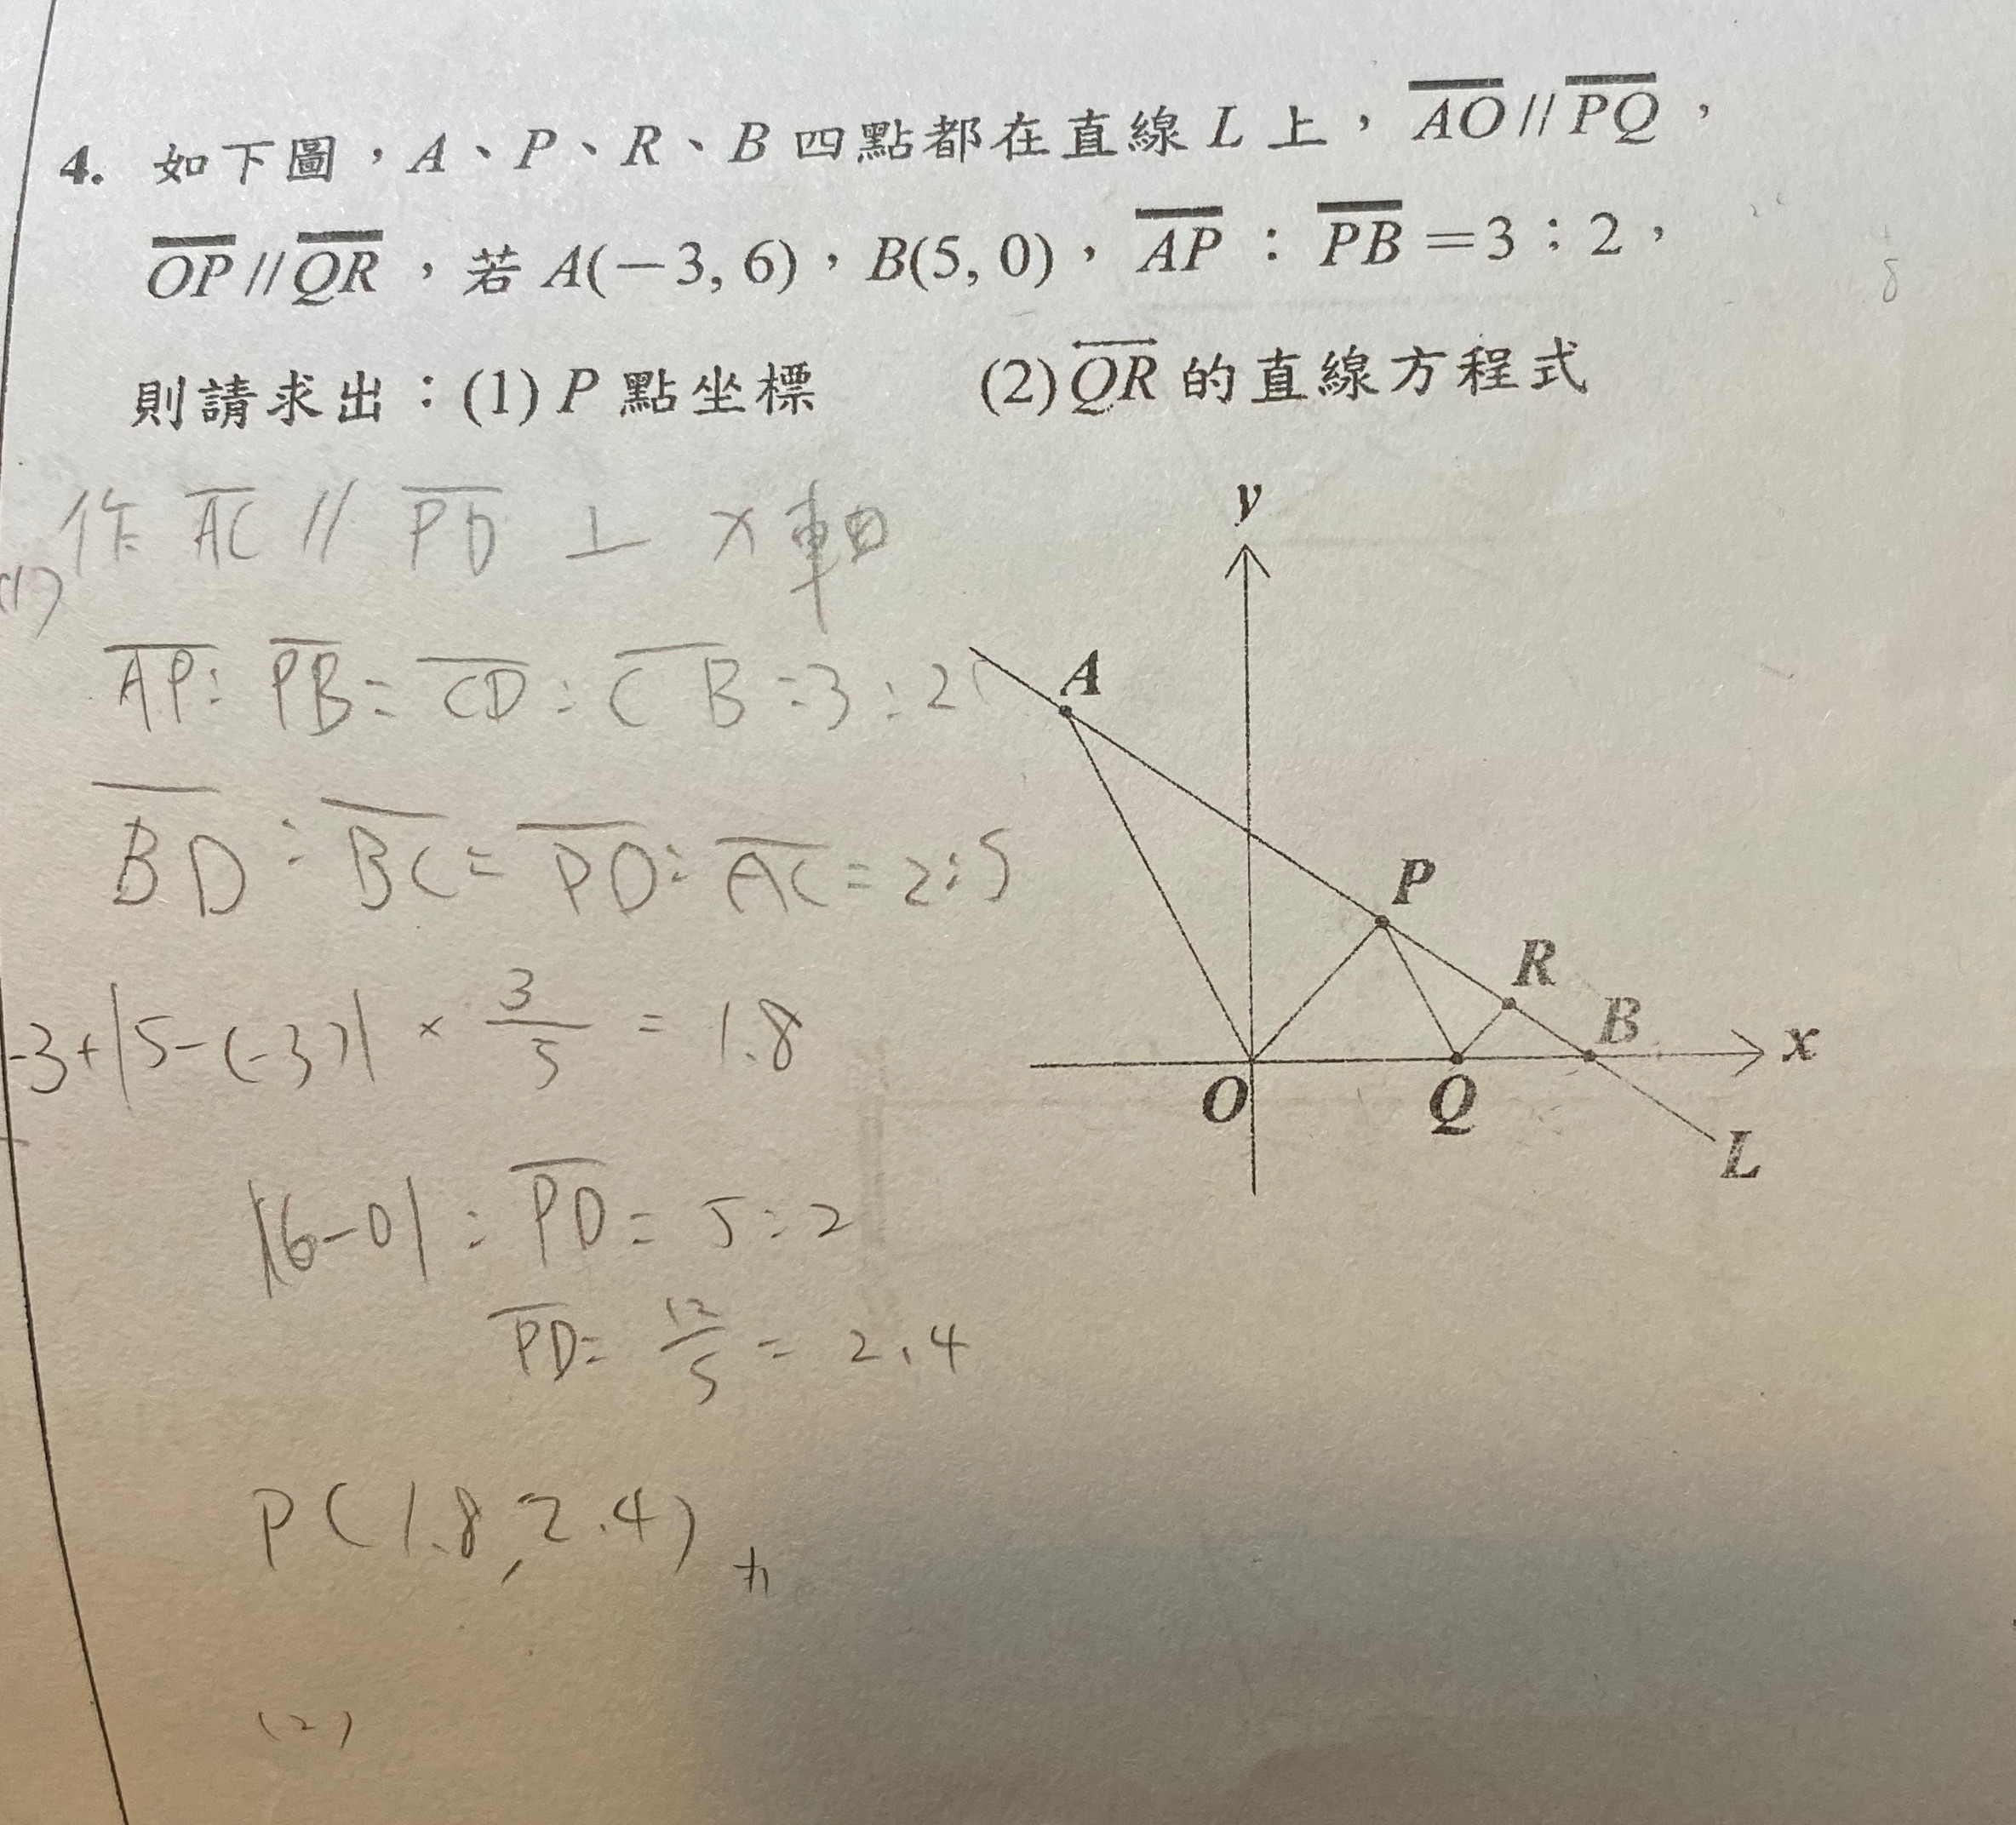 4. 如下圖，A、P、R、B 四點都在直線 L 上，AO // PQ，
OP // QR，若 A(−3, 6)，B(5, 0)，AP：PB＝3：2，
則請求出：(1) P 點坐標 (2) QR 的直線方程式
(1) 作 AC // PD ⊥ x 軸
AP : PB = CD : CB = 3 : 2
BD : BC = PD : AC = 2 : 5
-3+|5-(-3)| × 3/5 = 1.8
|6-0| : PD = 5 : 2
PD = 12/5 = 2.4
P(1.8, 2.4)
(2)
y
A
P
R
B
x
O
Q
L